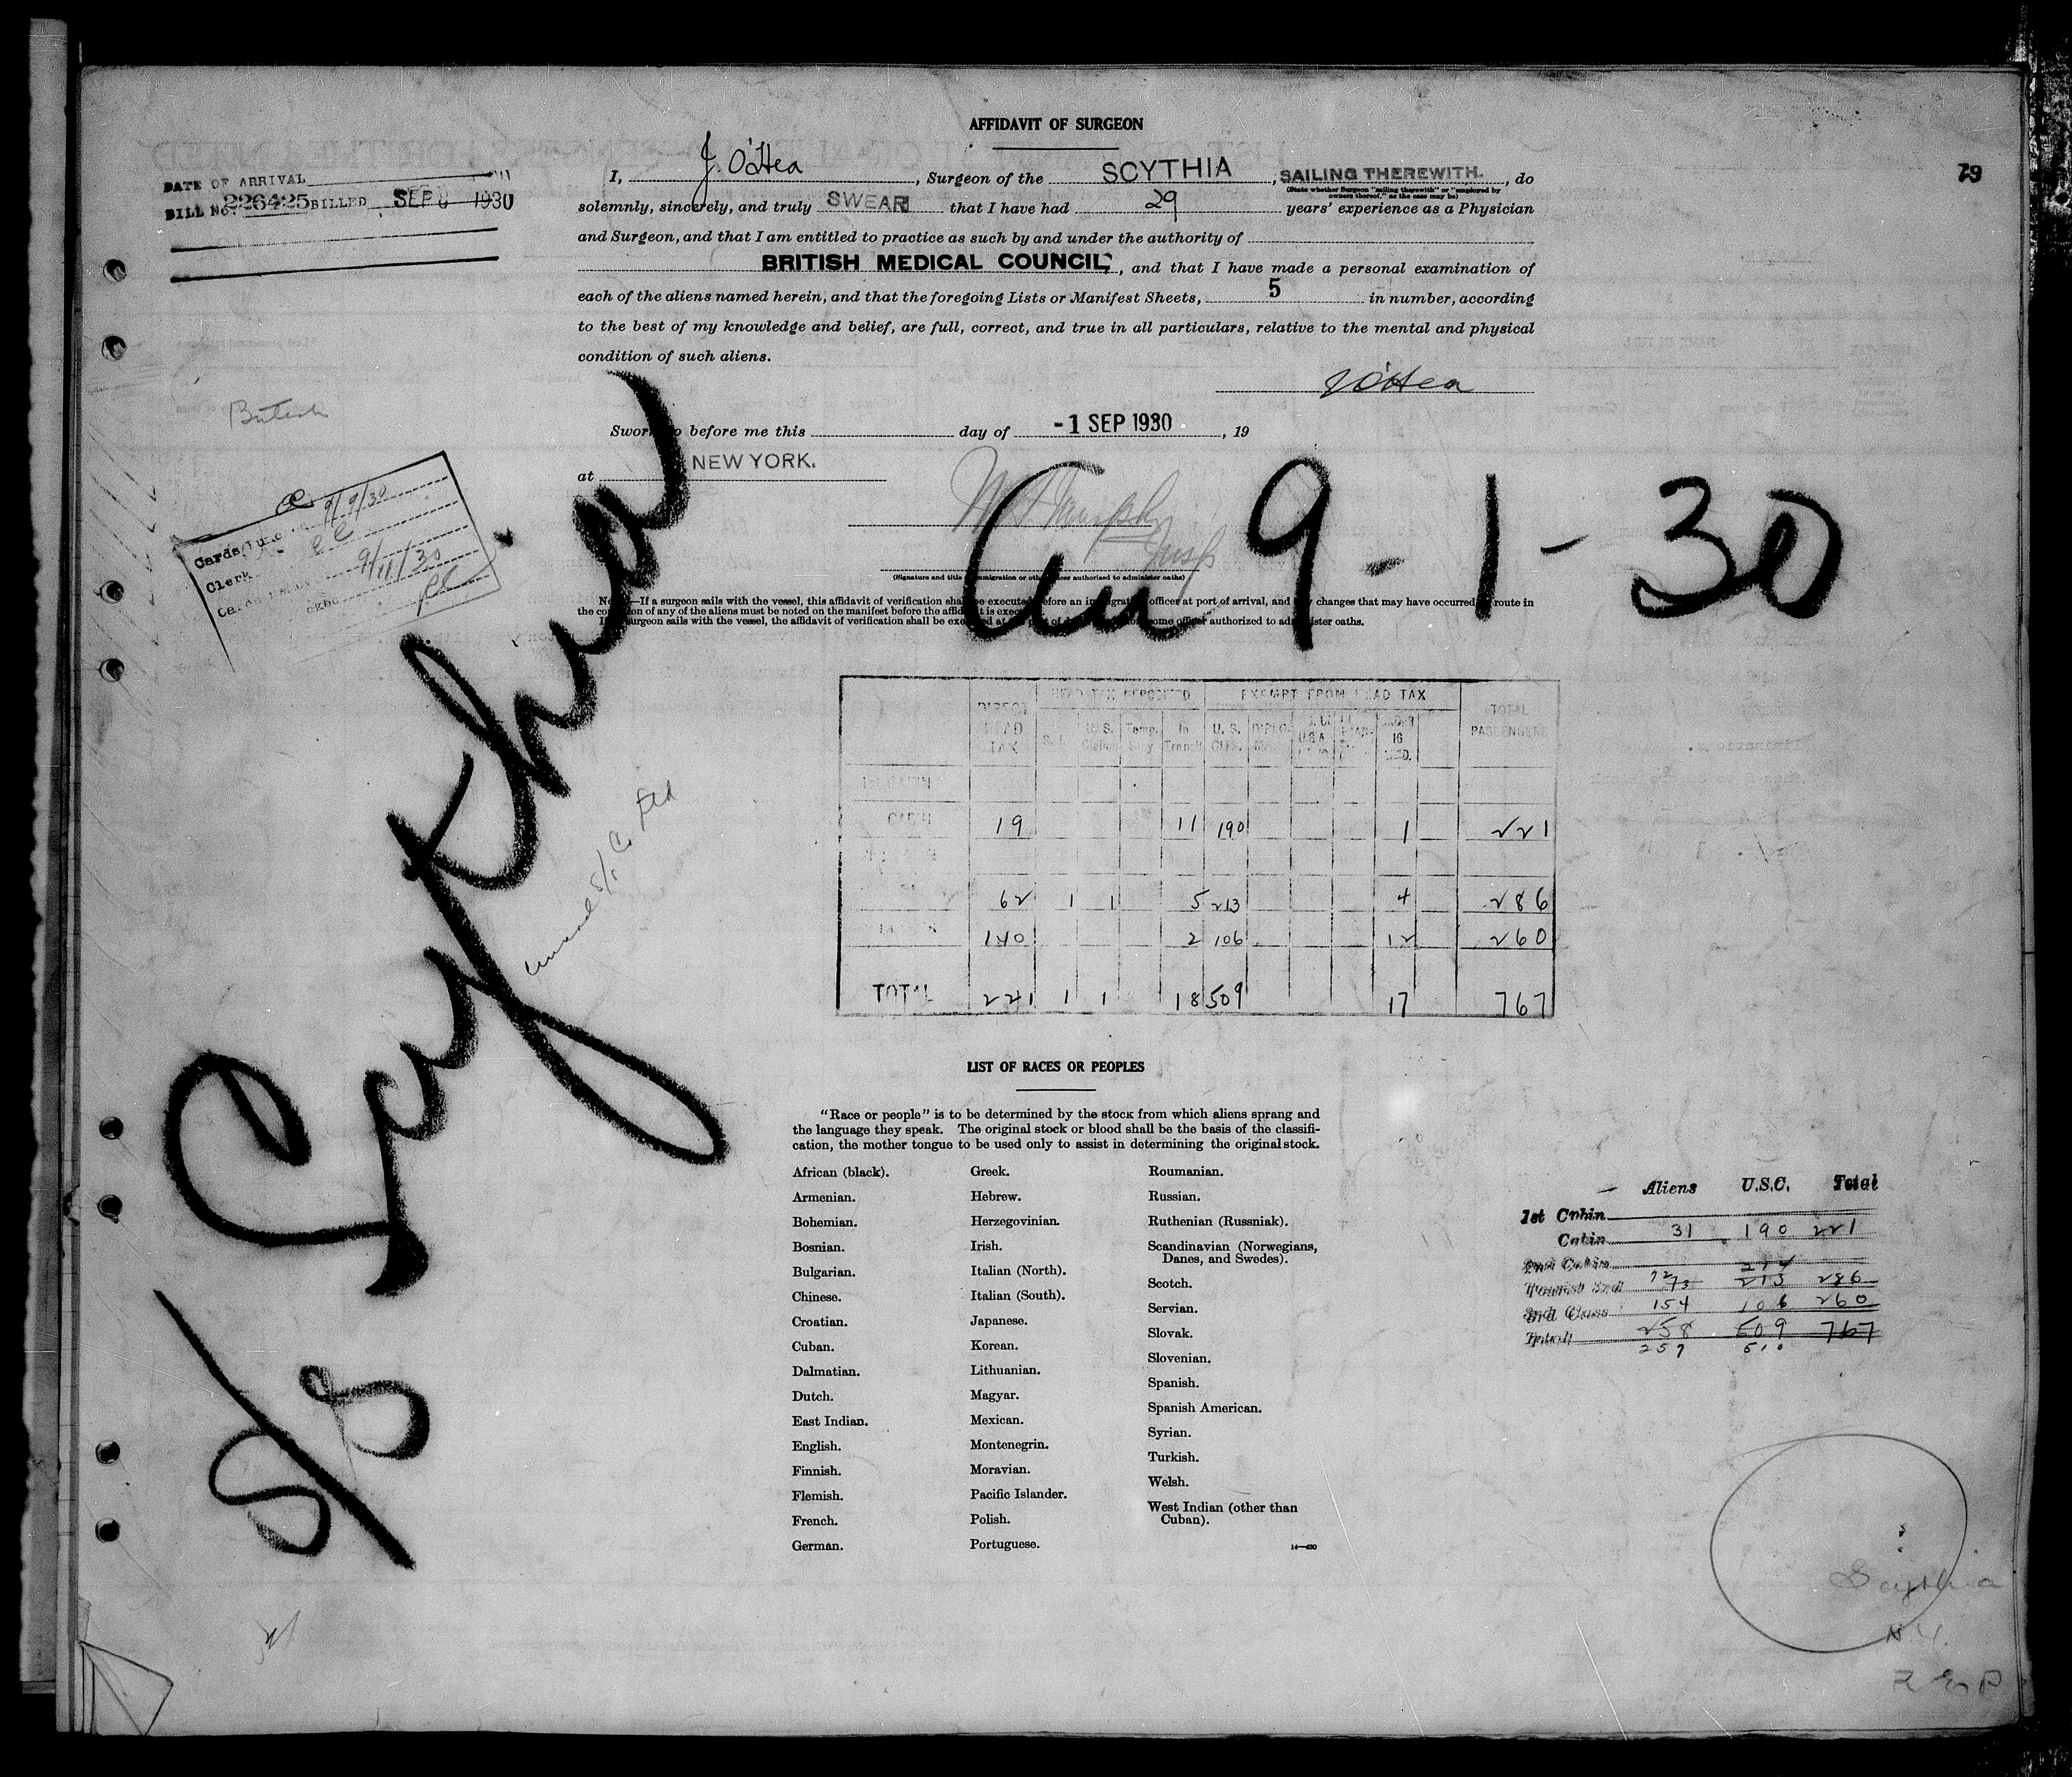 AFFIDAVIT OF SURGEON
79
DATE OF ARRIVAL
BILL No. 226425 BILLED SEP 9 1930
I, J. O'Hea, Surgeon of the SCYTHIA, SAILING THEREWITH., do
(State whether Surgeon "sailing therewith" or "employed by
owners thereof," as the case may be)
solemnly, sincerely, and truly SWEAR that I have had 29 years' experience as a Physician
and Surgeon, and that I am entitled to practice as such by and under the authority of
BRITISH MEDICAL COUNCIL, and that I have made a personal examination of
each of the aliens named herein, and that the foregoing Lists or Manifest Sheets, 5 in number, according
to the best of my knowledge and belief, are full, correct, and true in all particulars, relative to the mental and physical
condition of such aliens.
J O'Hea
British
Sworn to before me this day of -1 SEP 1930, 19
at NEW YORK.
Insp
(Signature and title of immigration or other officer authorized to administer oaths)
9/9/30
Clerk
9/11/30
S/S Scythia
9-1-30
Note.—If a surgeon sails with the vessel, this affidavit of verification shall be executed before an immigration officer at port of arrival, and any changes that may have occurred en route in
the condition of any of the aliens must be noted on the manifest before the affidavit is executed.
surgeon sails with the vessel, the affidavit of verification shall be executed at the port of some officer authorized to administer oaths.
HEAD TAX DEPOSITED EXEMPT FROM HEAD TAX
DIRECT HEAD TAX U.S. Temp. Stay In Transit U. S. CITS. 16 TOTAL PASSENGERS
CABIN 19 11 190 1 221
62 1 1 5 213 4 286
140 2 106 12 260
TOTAL 221 1 1 18 509 17 767
LIST OF RACES OR PEOPLES
"Race or people" is to be determined by the stock from which aliens sprang and
the language they speak. The original stock or blood shall be the basis of the classifi-
cation, the mother tongue to be used only to assist in determining the original stock.
African (black).
Armenian.
Bohemian.
Bosnian.
Bulgarian.
Chinese.
Croatian.
Cuban.
Dalmatian.
Dutch.
East Indian.
English.
Finnish.
Flemish.
French.
German.
Greek.
Hebrew.
Herzegovinian.
Irish.
Italian (North).
Italian (South).
Japanese.
Korean.
Lithuanian.
Magyar.
Mexican.
Montenegrin.
Moravian.
Pacific Islander.
Polish.
Portuguese.
Roumanian.
Russian.
Ruthenian (Russniak).
Scandinavian (Norwegians,
Danes, and Swedes).
Scotch.
Servian.
Slovak.
Slovenian.
Spanish.
Spanish American.
Syrian.
Turkish.
Welsh.
West Indian (other than
Cuban).
Aliens U.S.C. Total
1st Cabin
Cabin 31 190 221
2nd Cabin 214
Tourist 3rd 72 73 213 286
3rd Class 154 106 260
Total 258 509 767
257 510
Scythia
N.Y.